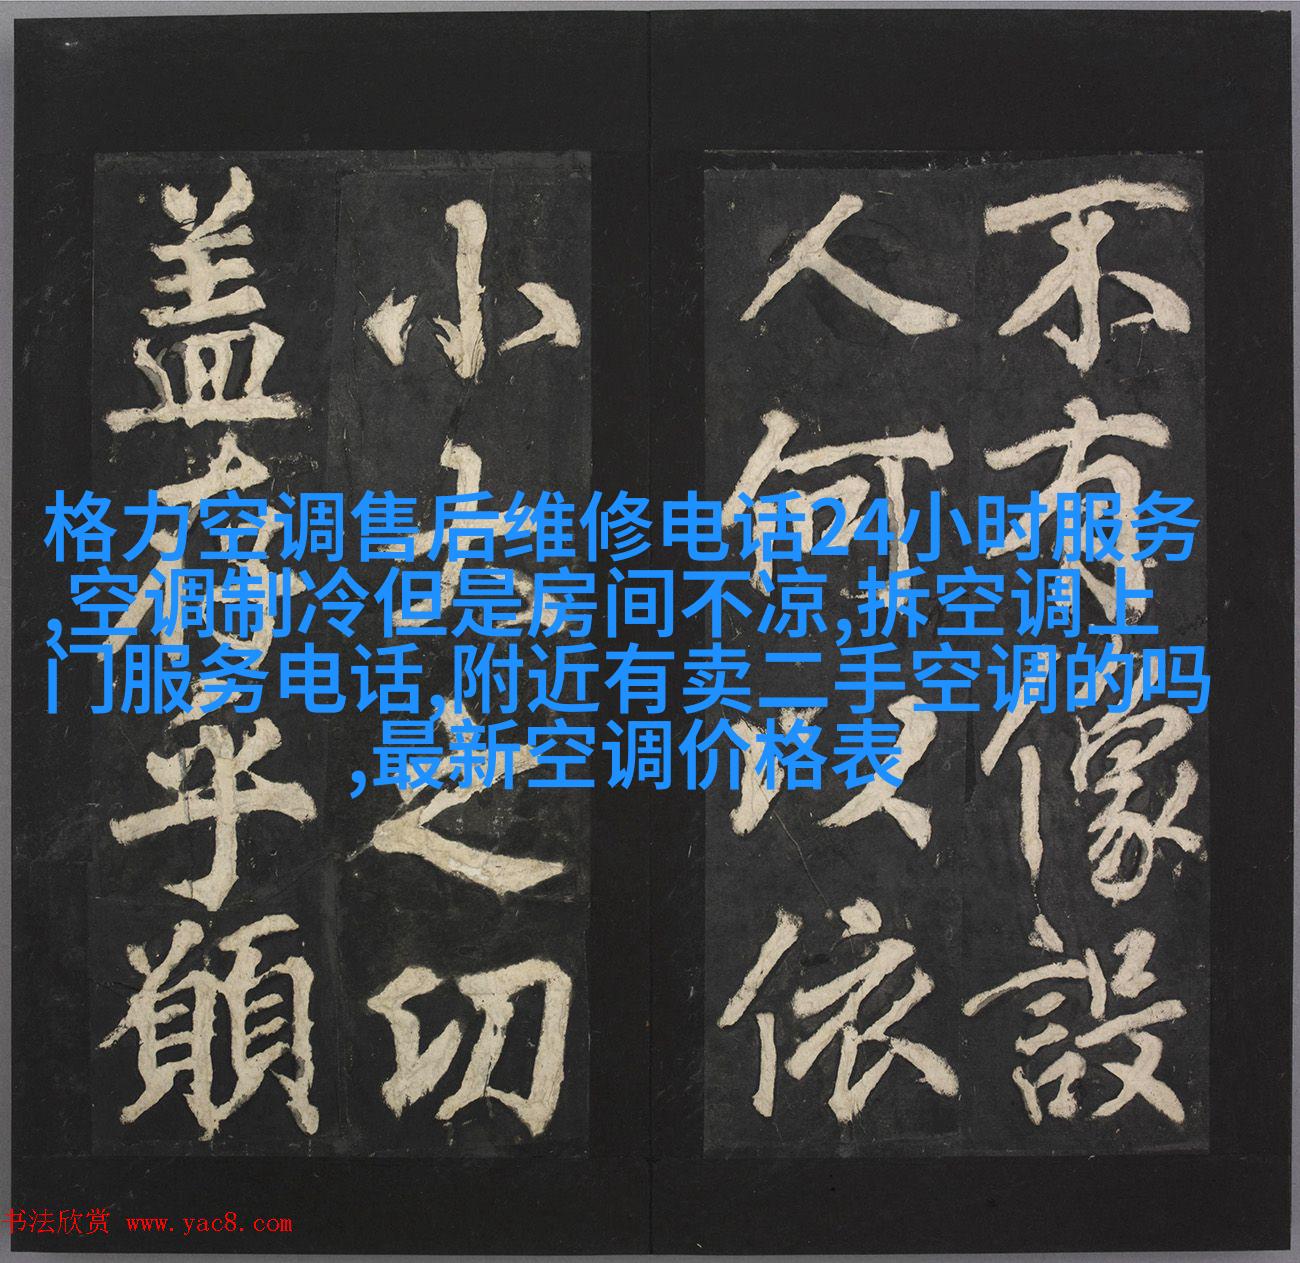 不有像設
人何以依
小之切
盖有乎
格力空调售后维修电话24小时服务
,空调制冷但是房间不凉,拆空调上
门服务电话,附近有卖二手空调的吗
,最新空调价格表
书法欣赏 www.yac8.com